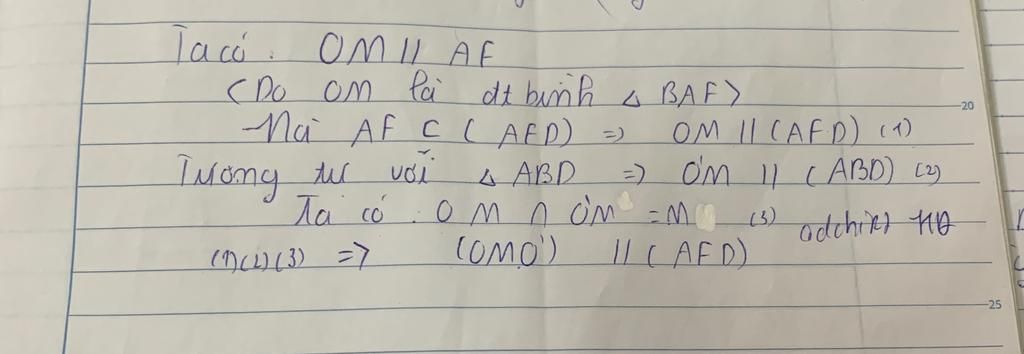 Ta có: OM // AF
(Do OM là đt bình △ BAF)
Mà AF ⊂ (AFD) => OM // (AFD) (1)
Tương tự với △ ABD => O'M // (ABD) (2)
Ta có: OM ∩ O'M = M (3)
(1)(2)(3) => (OMO') // (AFD)
20
25